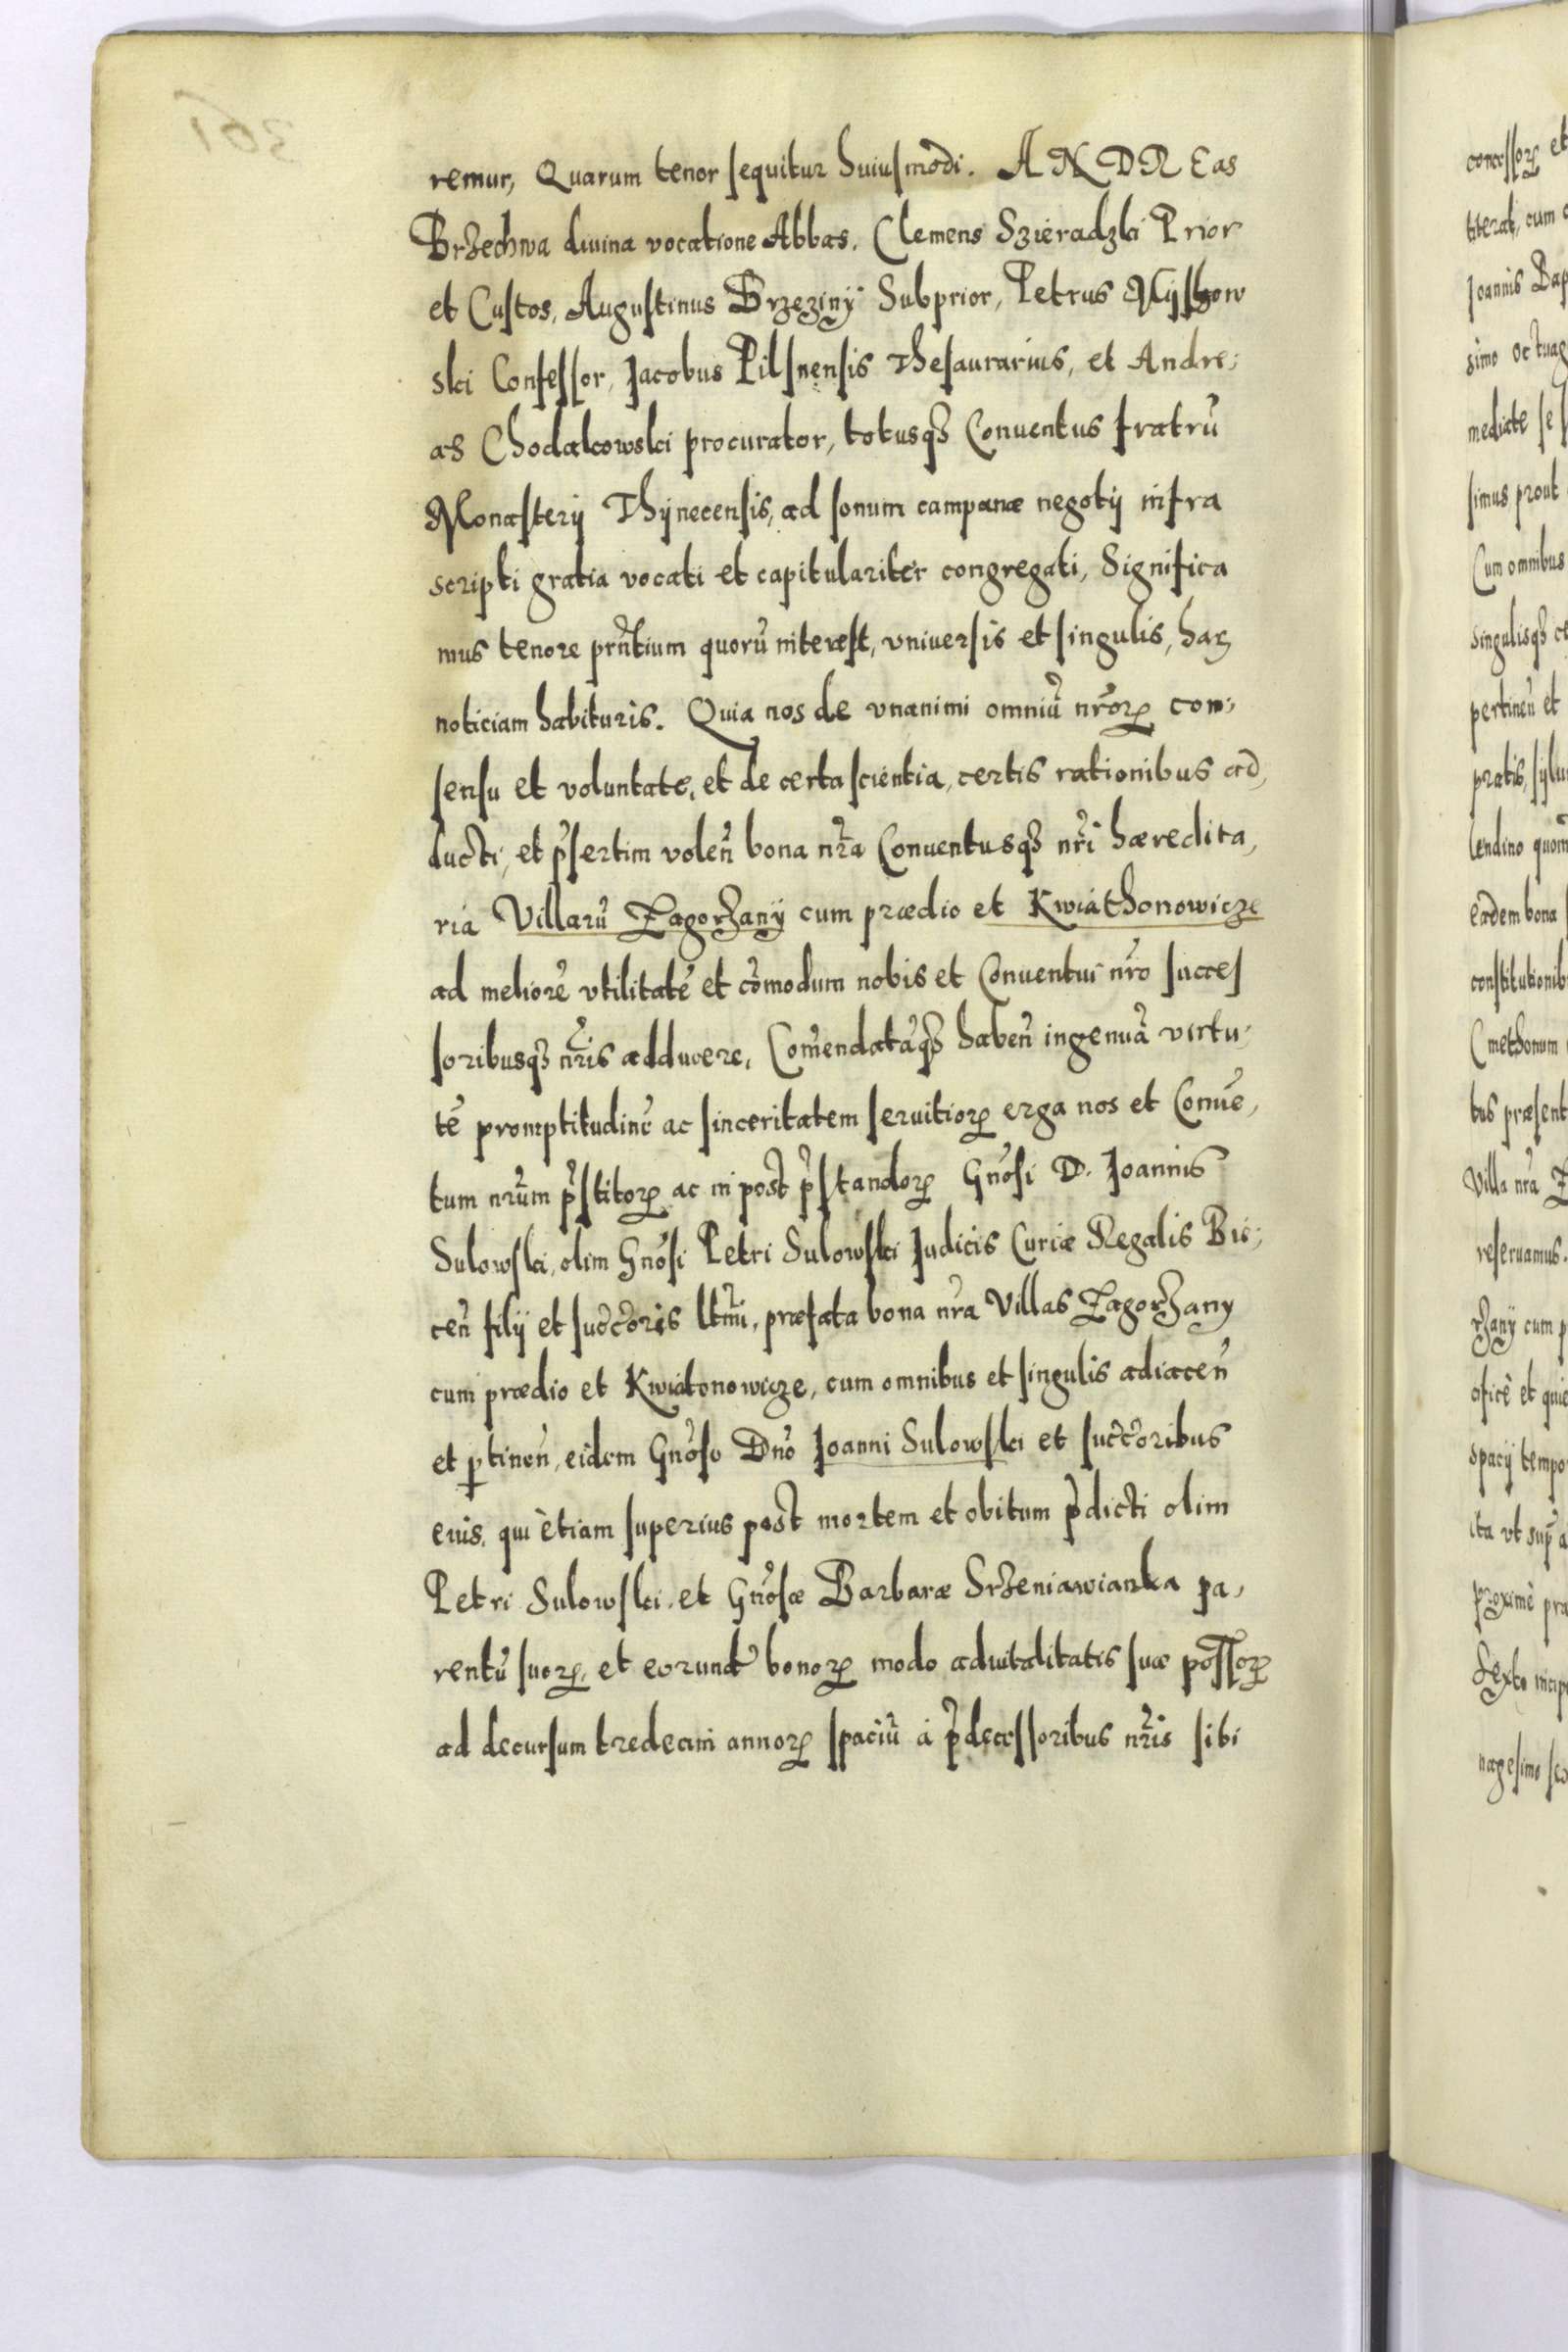 remur, Quarum tenor sequitur huiusmodi. ANDREas
Brzechwa diuina vocatione Abbas. Clemens Szieradzki Prior
et Custos, Augustinus Brzeziny Subprior, Petrus Myszkow
ski Confessor, Jacobus Pilsnensis Thesaurarius, et Andre-
as Chodakowski procurator, totusq3 Conuentus fratrū
Monasterij Thynecensis, ad sonum campanæ negotij infra
scripti gratia vocati et capitulariter congregati, Significa
mus tenore prñtium quorū interest, vniuersis et singulis, harꝫ
noticiam habituris. Quia nos de vnanimi omniū nrõrꝝ con-
sensu et voluntate, et de certa scientia, certis rationibus ad,
ducti, et p̃sertim voleñ bona nr̃a Conuentusq3 nr̃i hæredita,
ria Villarū Zagorzany cum prædio et Kwiathonowicze
ad meliorē vtilitatē et cōmodum nobis et Conuentui nr̃o succes
soribusq3 nr̃is adducere, Com̃endatāq3 habeñ ingenuā virtu-
tē promptitudinē ac sinceritatem seruitiorꝝ erga nos et Conuē,
tum nr̃um p̃stitorꝝ ac in post p̃standorꝝ Gñosi D. Joannis
Sulowski, olim Gñosi Petri Sulowski Judicis Curiæ Regalis Bie-
ceñ filij et succ̃oris ltm̃i, præfata bona nr̃a Villas Zagorzany
cum prædio et Kwiatonowicze, cum omnibus et singulis adiaceñ
et ꝑtineñ, eidem Gñoso Dño Joanni Sulowski et succ̃oribus
eius, qui ètiam superius post mortem et obitum p̃dicti olim
Petri Sulowski, et Gñosæ Barbaræ Srzeniawianka pa,
rentū suorꝝ, et eorund̃ bonorꝝ modo aduitalitatis suæ poss̃orꝝ
ad decursum tredecim annorꝝ spaciū à p̃decessoribus nr̃is sibi
concessorꝝ et
titerat, cum
Joannis Bap
simo octuag
mediate se
simus prout
Cum omnibus
singulisq3
pertineñ et
pratis, sylu
eadem bona
constitutionib
Cmethonum
tus præsent
Villa nr̃a Z
reseruamus.
rzany cum p
officē et quie
spacij tempo
ita vt sup̃ a
proximè pra
Sexto incip
nagesimo sec
361